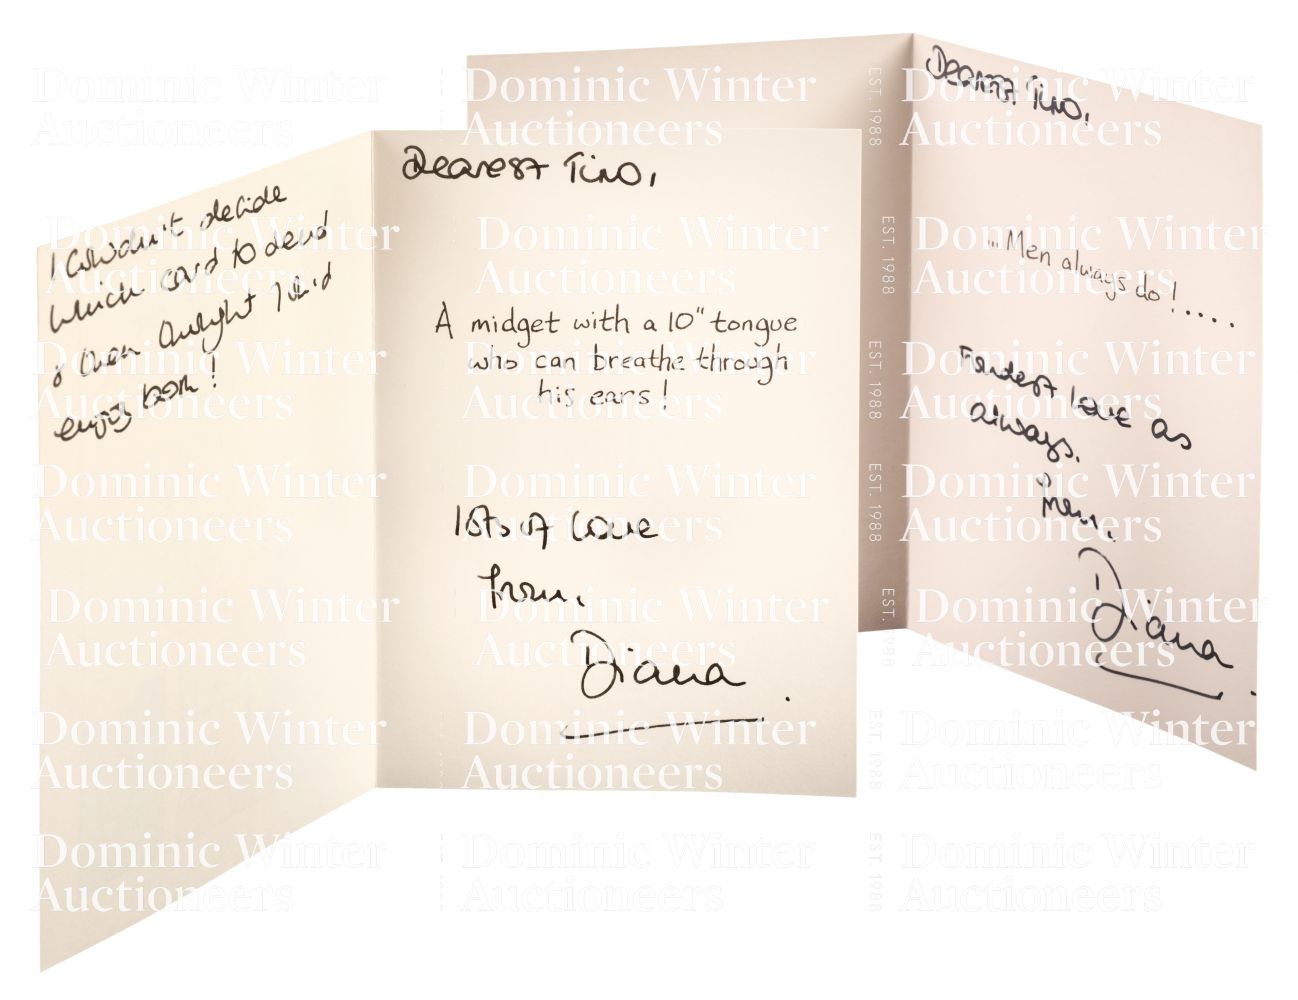 I couldn't decide
which card to send
& then thought I did
enjoy both!
Dearest Tino,
A midget with a 10" tongue
who can breathe through
his ears!
lots of love
from,
Diana
Dearest Tino,
... Men always do!.....
Fondest love as
always,
from,
Diana
Dominic Winter
Auctioneers
EST. 1988